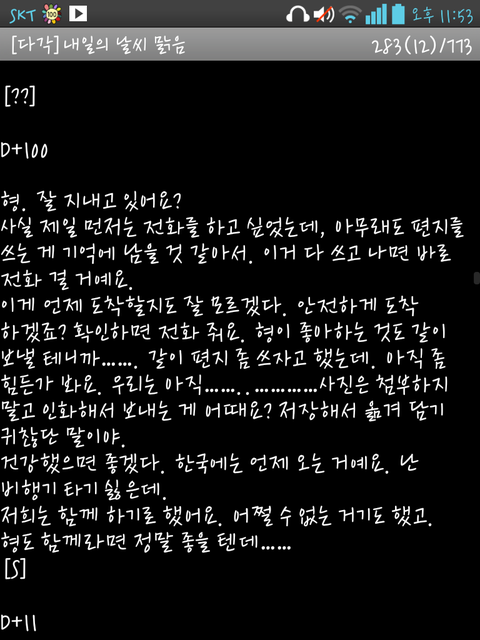 SKT 100 오후 11:53
[다각]내일의 날씨 맑음 283(12)/773
[??]
D+100
형. 잘 지내고 있어요?
사실 제일 먼저는 전화를 하고 싶었는데, 아무래도 편지를
쓰는 게 기억에 남을 것 같아서. 이거 다 쓰고 나면 바로
전화 걸 거예요.
이게 언제 도착할지도 잘 모르겠다. 안전하게 도착
하겠죠? 확인하면 전화 줘요. 형이 좋아하는 것도 같이
보낼 테니까……. 같이 편지 좀 쓰자고 했는데. 아직 좀
힘든가 봐요. 우리는 아직……..…………사진은 첨부하지
말고 인화해서 보내는 게 어때요? 저장해서 옮겨 담기
귀찮단 말이야.
건강했으면 좋겠다. 한국에는 언제 오는 거예요. 난
비행기 타기 싫은데.
저희는 함께 하기로 했어요. 어쩔 수 없는 거기도 했고.
형도 함께라면 정말 좋을 텐데……
[S]
D+11